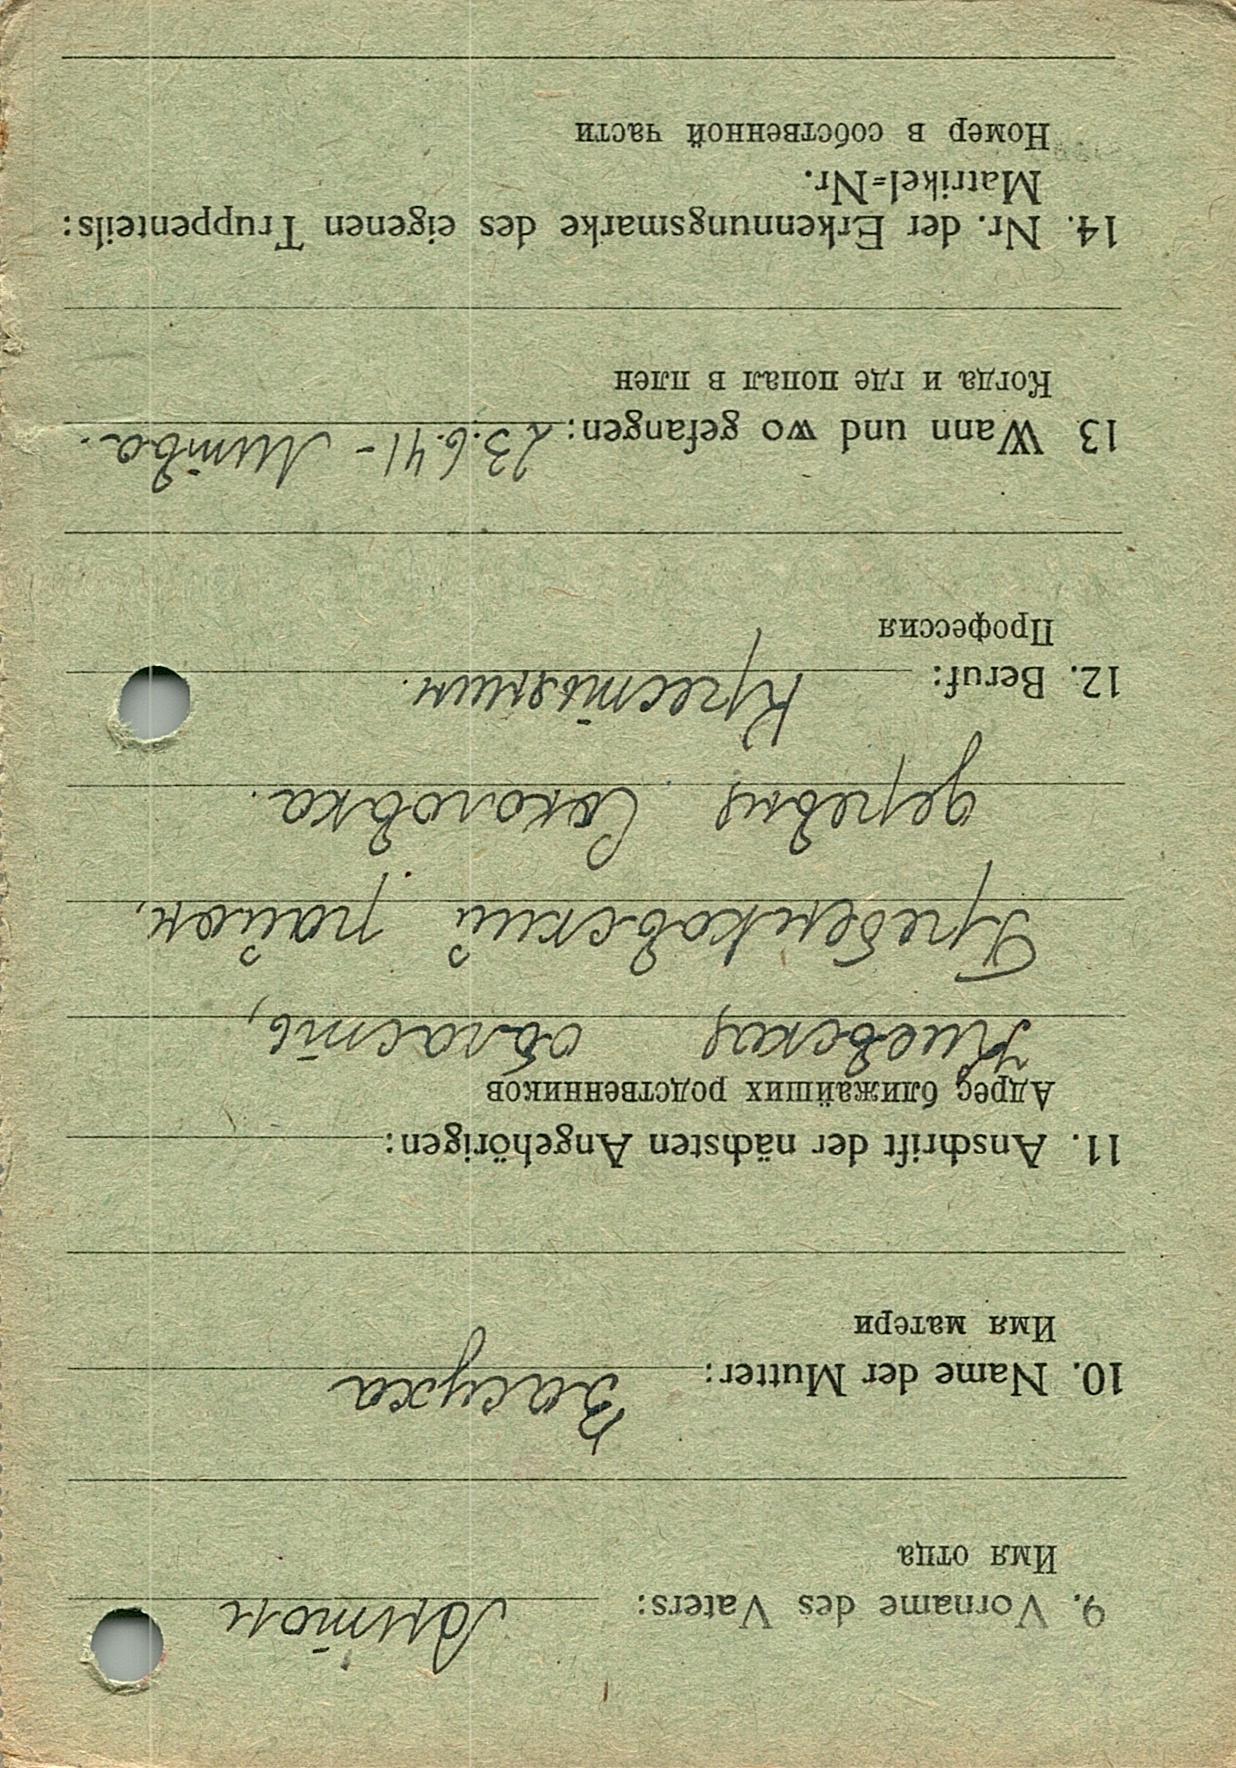 9. Vorname des Vaters: Антон
Имя отца
10. Name der Mutter: Засуха
Имя матери
11. Anschrift der nächsten Angehörigen:
Адрес ближайших родственников
Киевская область,
Гребенковский район,
деревня Соколовка.
12. Beruf: Крестьянин.
Профессия
13 Wann und wo gefangen: 23.6.41 - Литва.
Когда и где попал в плен
14. Nr. der Erkennungsmarke des eigenen Truppenteils:
Matrikel=Nr.
Номер в собственной части